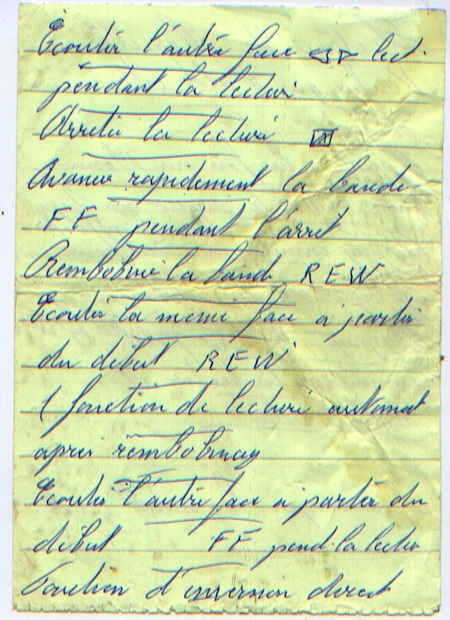 Ecouter l'autre face ◁▷ lect.
pendant la lecture
Arreter la lecture
Avancer rapidement la bande
FF pendant l'arret
Rembobiner la bande REW
Ecouter la meme face a partir
du debut REW
( fonction de lecture automat
apres rembobinag
Ecouter l'autre face a partir du
debut FF pend. la lectur
Fonction d'inversion direct